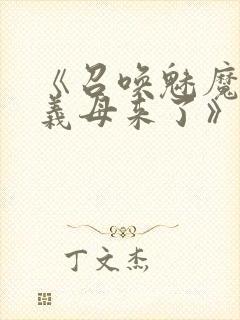 《召唤魅魔
義母来了》
丁文杰